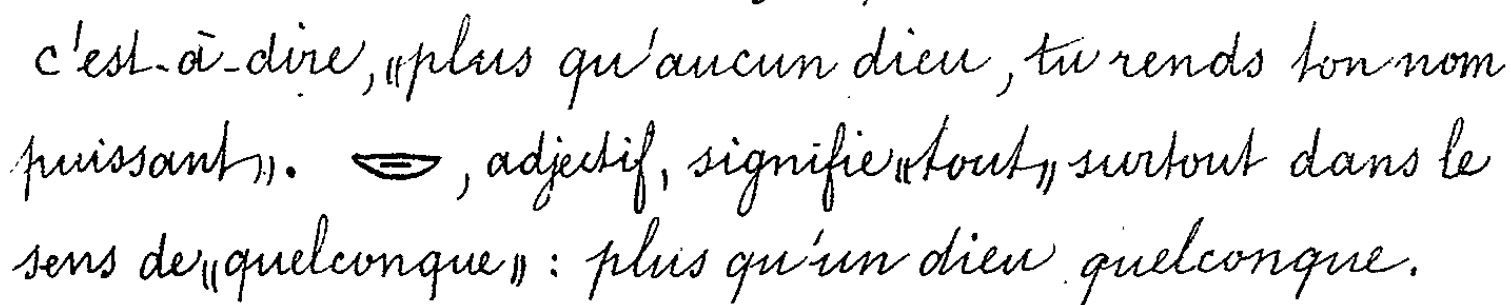 c'est-à-dire, «plus qu'aucun dieu, tu rends ton nom
puissant». 𓎟, adjectif, signifie «tout» surtout dans le
sens de «quelconque» : plus qu'un dieu quelconque.